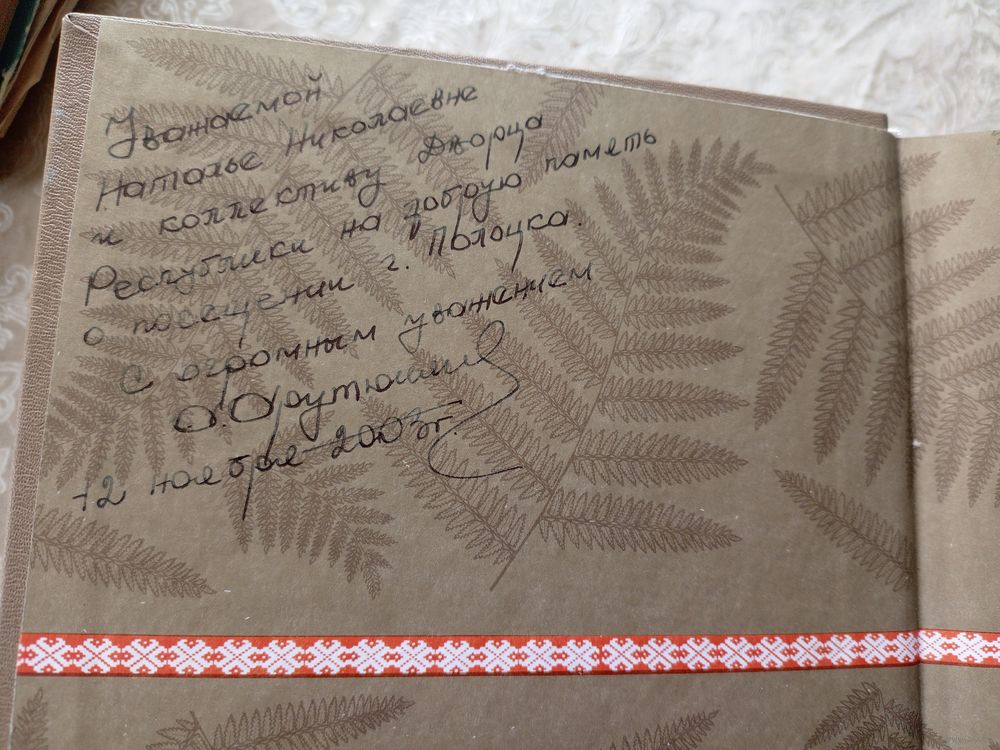 Уважаемой
Наталье Николаевне
и коллективу Дворца
Республики на добрую память
о посещении г. Полоцка.
С огромным уважением
12 ноября 2003г.